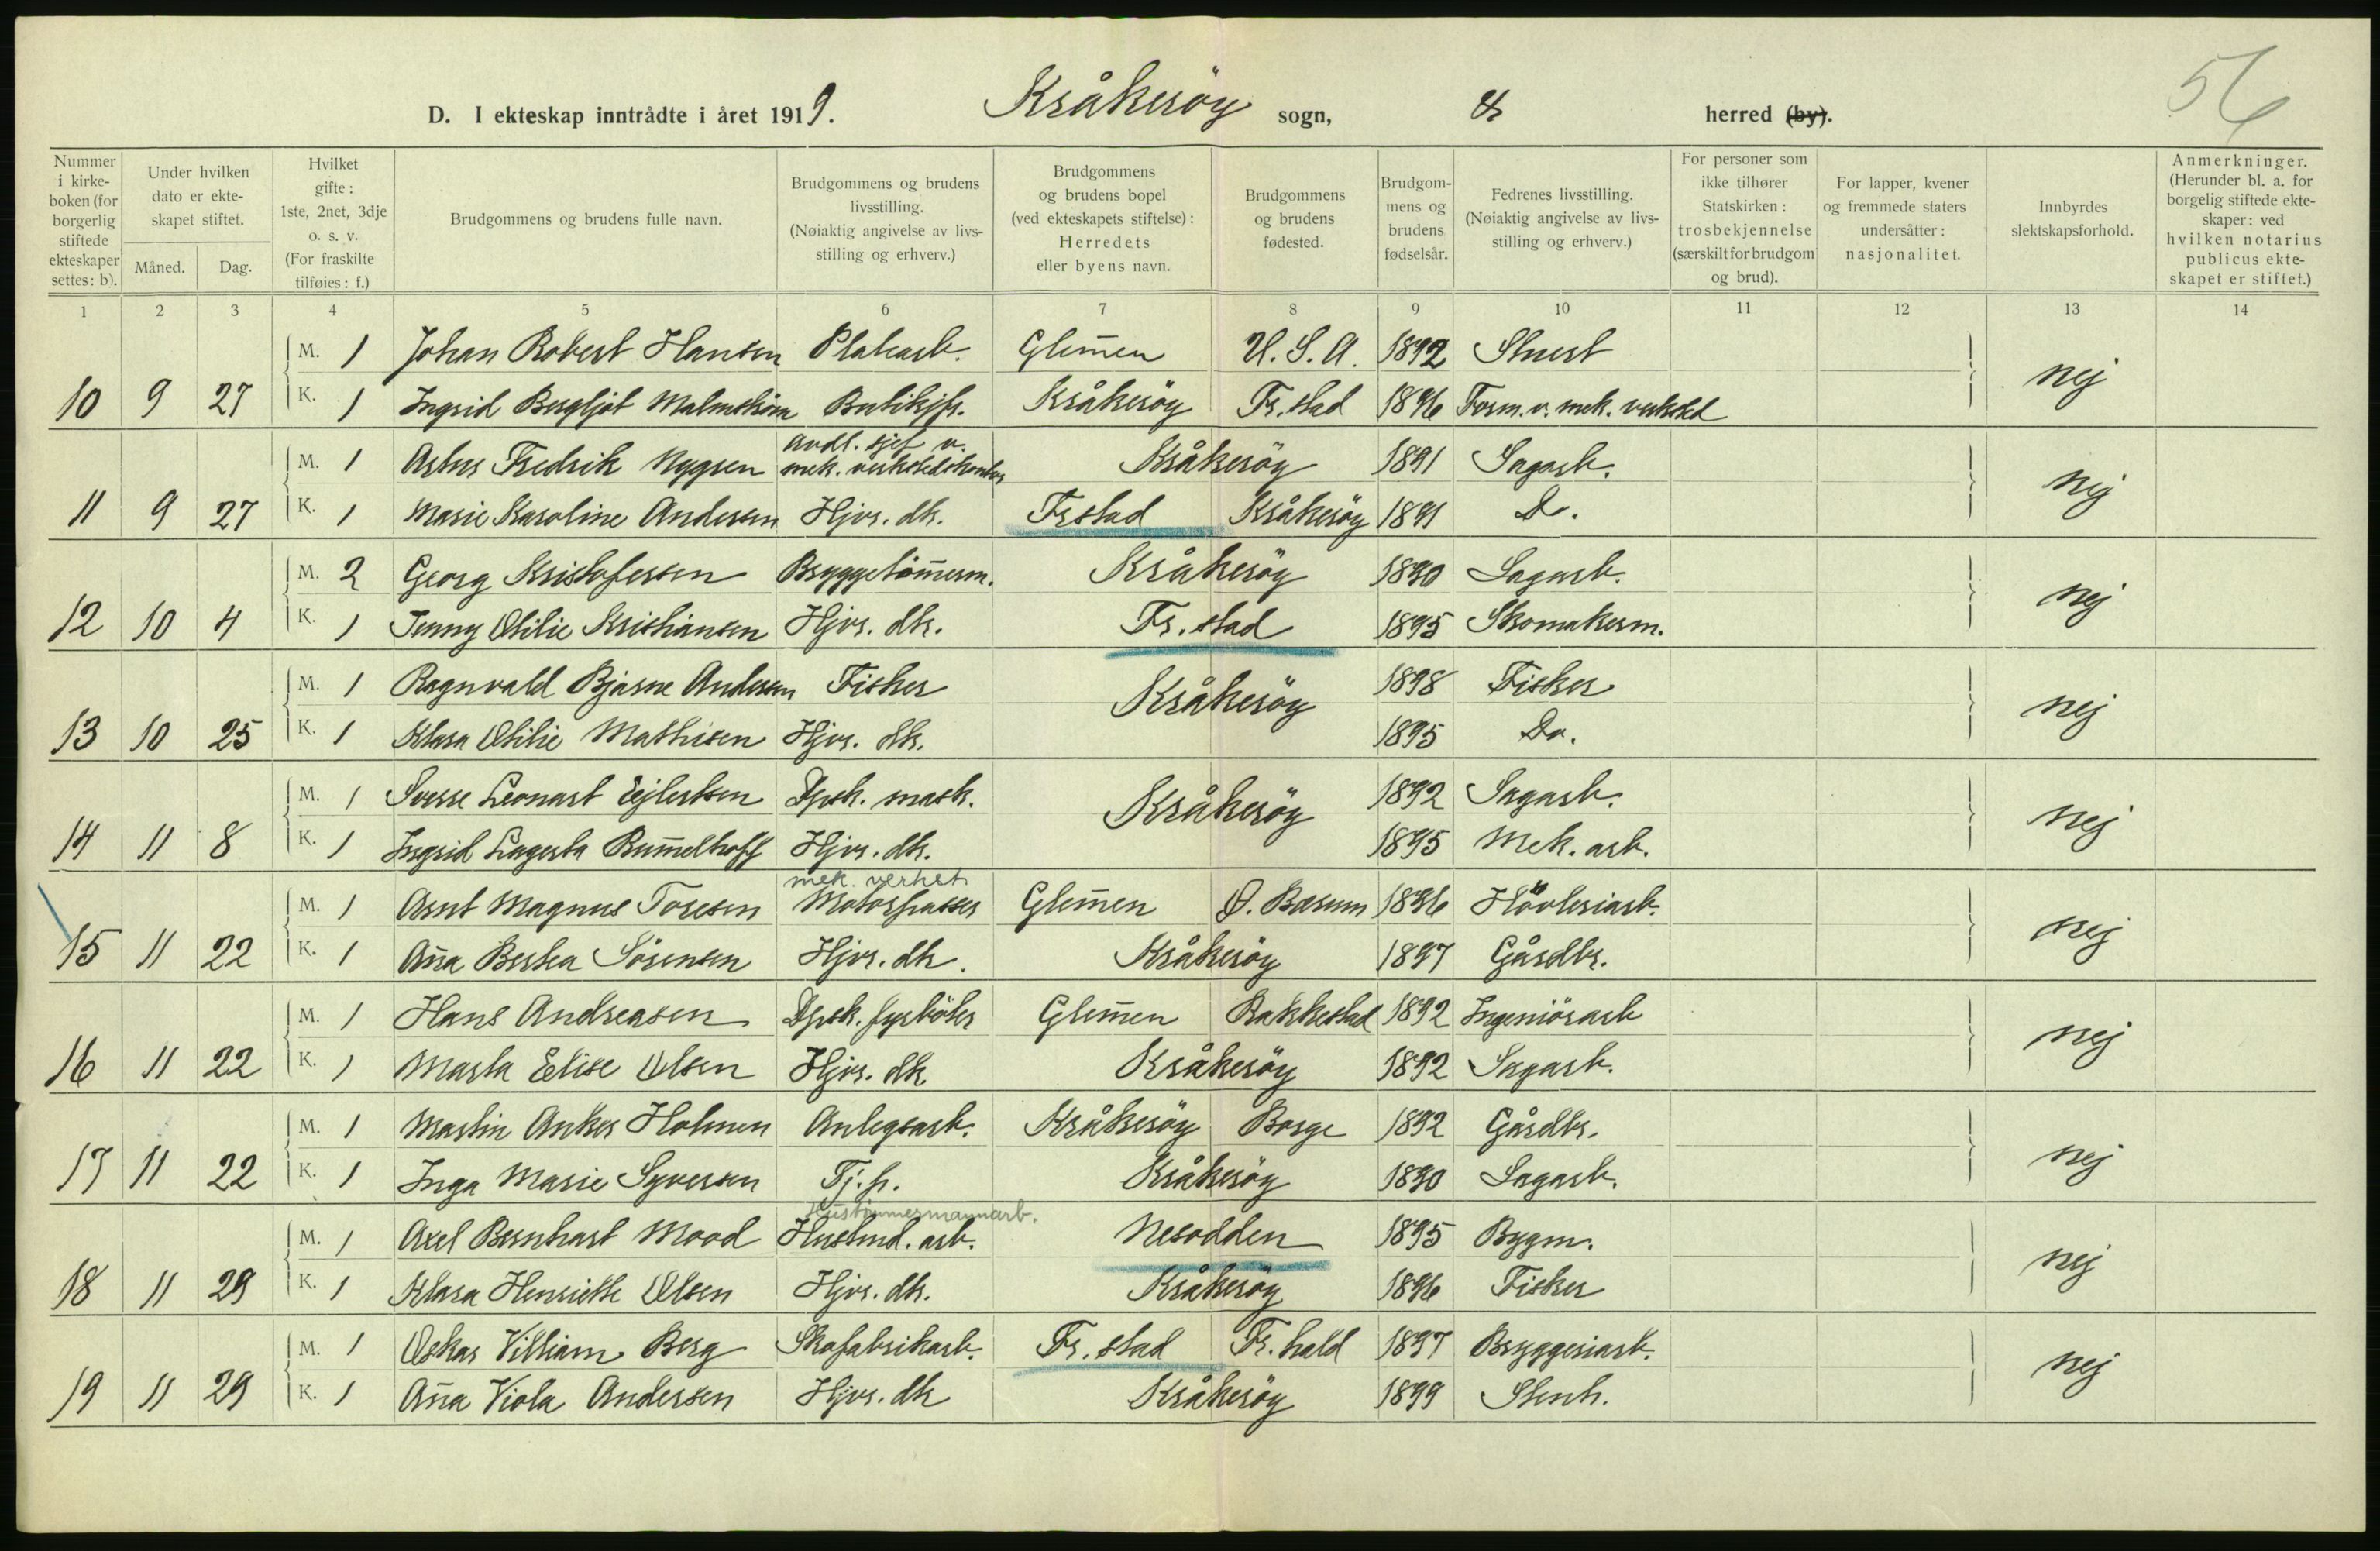 56
D. I ekteskap inntrådte i året 1919. Kråkerøy sogn, & herred (by).
Nummer i kirkeboken (for borgerlig stiftede ekteskaper settes: b).
Under hvilken dato er ekteskapet stiftet.
Måned. Dag.
Hvilket gifte: 1ste, 2net, 3dje o. s. v. (For fraskilte tilføies: f.)
Brudgommens og brudens fulle navn.
Brudgommens og brudens livsstilling. (Nøiaktig angivelse av livsstilling og erhverv.)
Brudgommens og brudens bopel (ved ekteskapets stiftelse): Herredets eller byens navn.
Brudgommens og brudens fødested.
Brudgommens og brudens fødselsår.
Fedrenes livsstilling. (Nøiaktig angivelse av livsstilling og erhverv.)
For personer som ikke tilhører Statskirken: trosbekjennelse (særskilt for brudgom og brud).
For lapper, kvener og fremmede staters undersåtter: nasjonalitet.
Innbyrdes slektskapsforhold.
Anmerkninger. (Herunder bl. a. for borgelig stiftede ekteskaper: ved hvilken notarius publicus ekteskapet er stiftet.)
1 2 3 4 5 6 7 8 9 10 11 12 13 14
M. 1 Johan Robert Hansen Platearb. Glem̄en U.S.A. 1892 Stuert
10 9 27 K. 1 Ingrid Bergljot Malmström Butikjfr. Kråkeröy Fr.stad 1896 Form. v. mek. verksted nej
avdl. sjef v.
M. 1 Artur Fredrik Nygren mek. verkstedskontor Kråkeröy 1891 Sagarb.
11 9 27 K. 1 Marie Karoline Andersen Hjvr. dtr. Frstad Kråkeröy 1891 Do. nej
M. 2 Georg Kristofersen Bryggetöm̄erm. Kråkeröy 1890 Sagarb.
12 10 4 K. 1 Jenny Otilie Kristiansen Hjvr. dtr. Fr.stad 1895 Skomakerm. nej
M. 1 Ragnvald Bjarne Andersen Fisker Kråkeröy 1898 Fisker
13 10 25 K. 1 Klara Otilie Mathisen Hjvr. dtr. 1895 Do. nej
M. 1 Sverre Leonart Ejlertsen Dpsk. mask. Kråkeröy 1892 Sagarb.
14 11 8 K. 1 Ingrid Lagerta Rum̄elhoff Hjvr. dtr. 1895 Mek. arb. nej
mek. verkst.
M. 1 Arnt Magnus Toresen Motorpasser Glem̄en Ø. Bærum 1896 Hövleriarb.
15 11 22 K. 1 An̄a Bertea Sörensen Hjvr. dtr. Kråkeröy 1897 Gårdbr. nej
M. 1 Hans Andreasen Dpsk. fyrböter Glem̄en Rakkestad 1892 Ingeniörarb
16 11 22 K. 1 Marta Elise Olsen Hjvr. dtr Kråkeröy 1892 Sagarb. nej
M. 1 Martin Anker Holmen Anlegsarb. Kråkeröy Borge 1892 Gårdbr.
17 11 22 K. 1 Inga Marie Syversen Tj.p. Kråkeröy 1890 Sagarb. nej
Hustömmermannarb.
M. 1 Axel Bernhart Mood Hustmd. arb. Nesodden 1895 Bygm.
18 11 29 K. 1 Klara Henriette Olsen Hjvr. dtr. Kråkeröy 1896 Fisker nej
M. 1 Oskar Villiam Berg Skofabrikarb. Fr.stad Fr.hald 1897 Bryggeriarb.
19 11 29 K. 1 An̄a Viola Andersen Hjvr. dtr Kråkeröy 1899 Stenh. nej